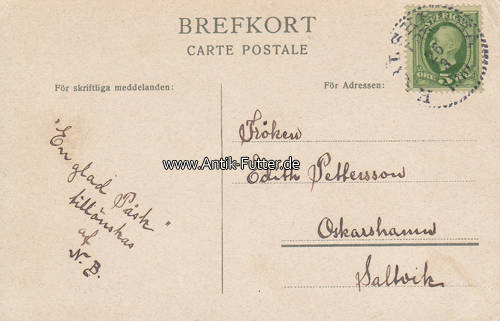 BREFKORT
CARTE POSTALE
För skriftliga meddelanden:
För Adressen:
SVERIGE
5 ÖRE
"En glad Påsk"
tillönskas
af
N. B.
Fröken
Edith Pettersson
Oskarshamn
Saltvik
www.Antik-Futter.de